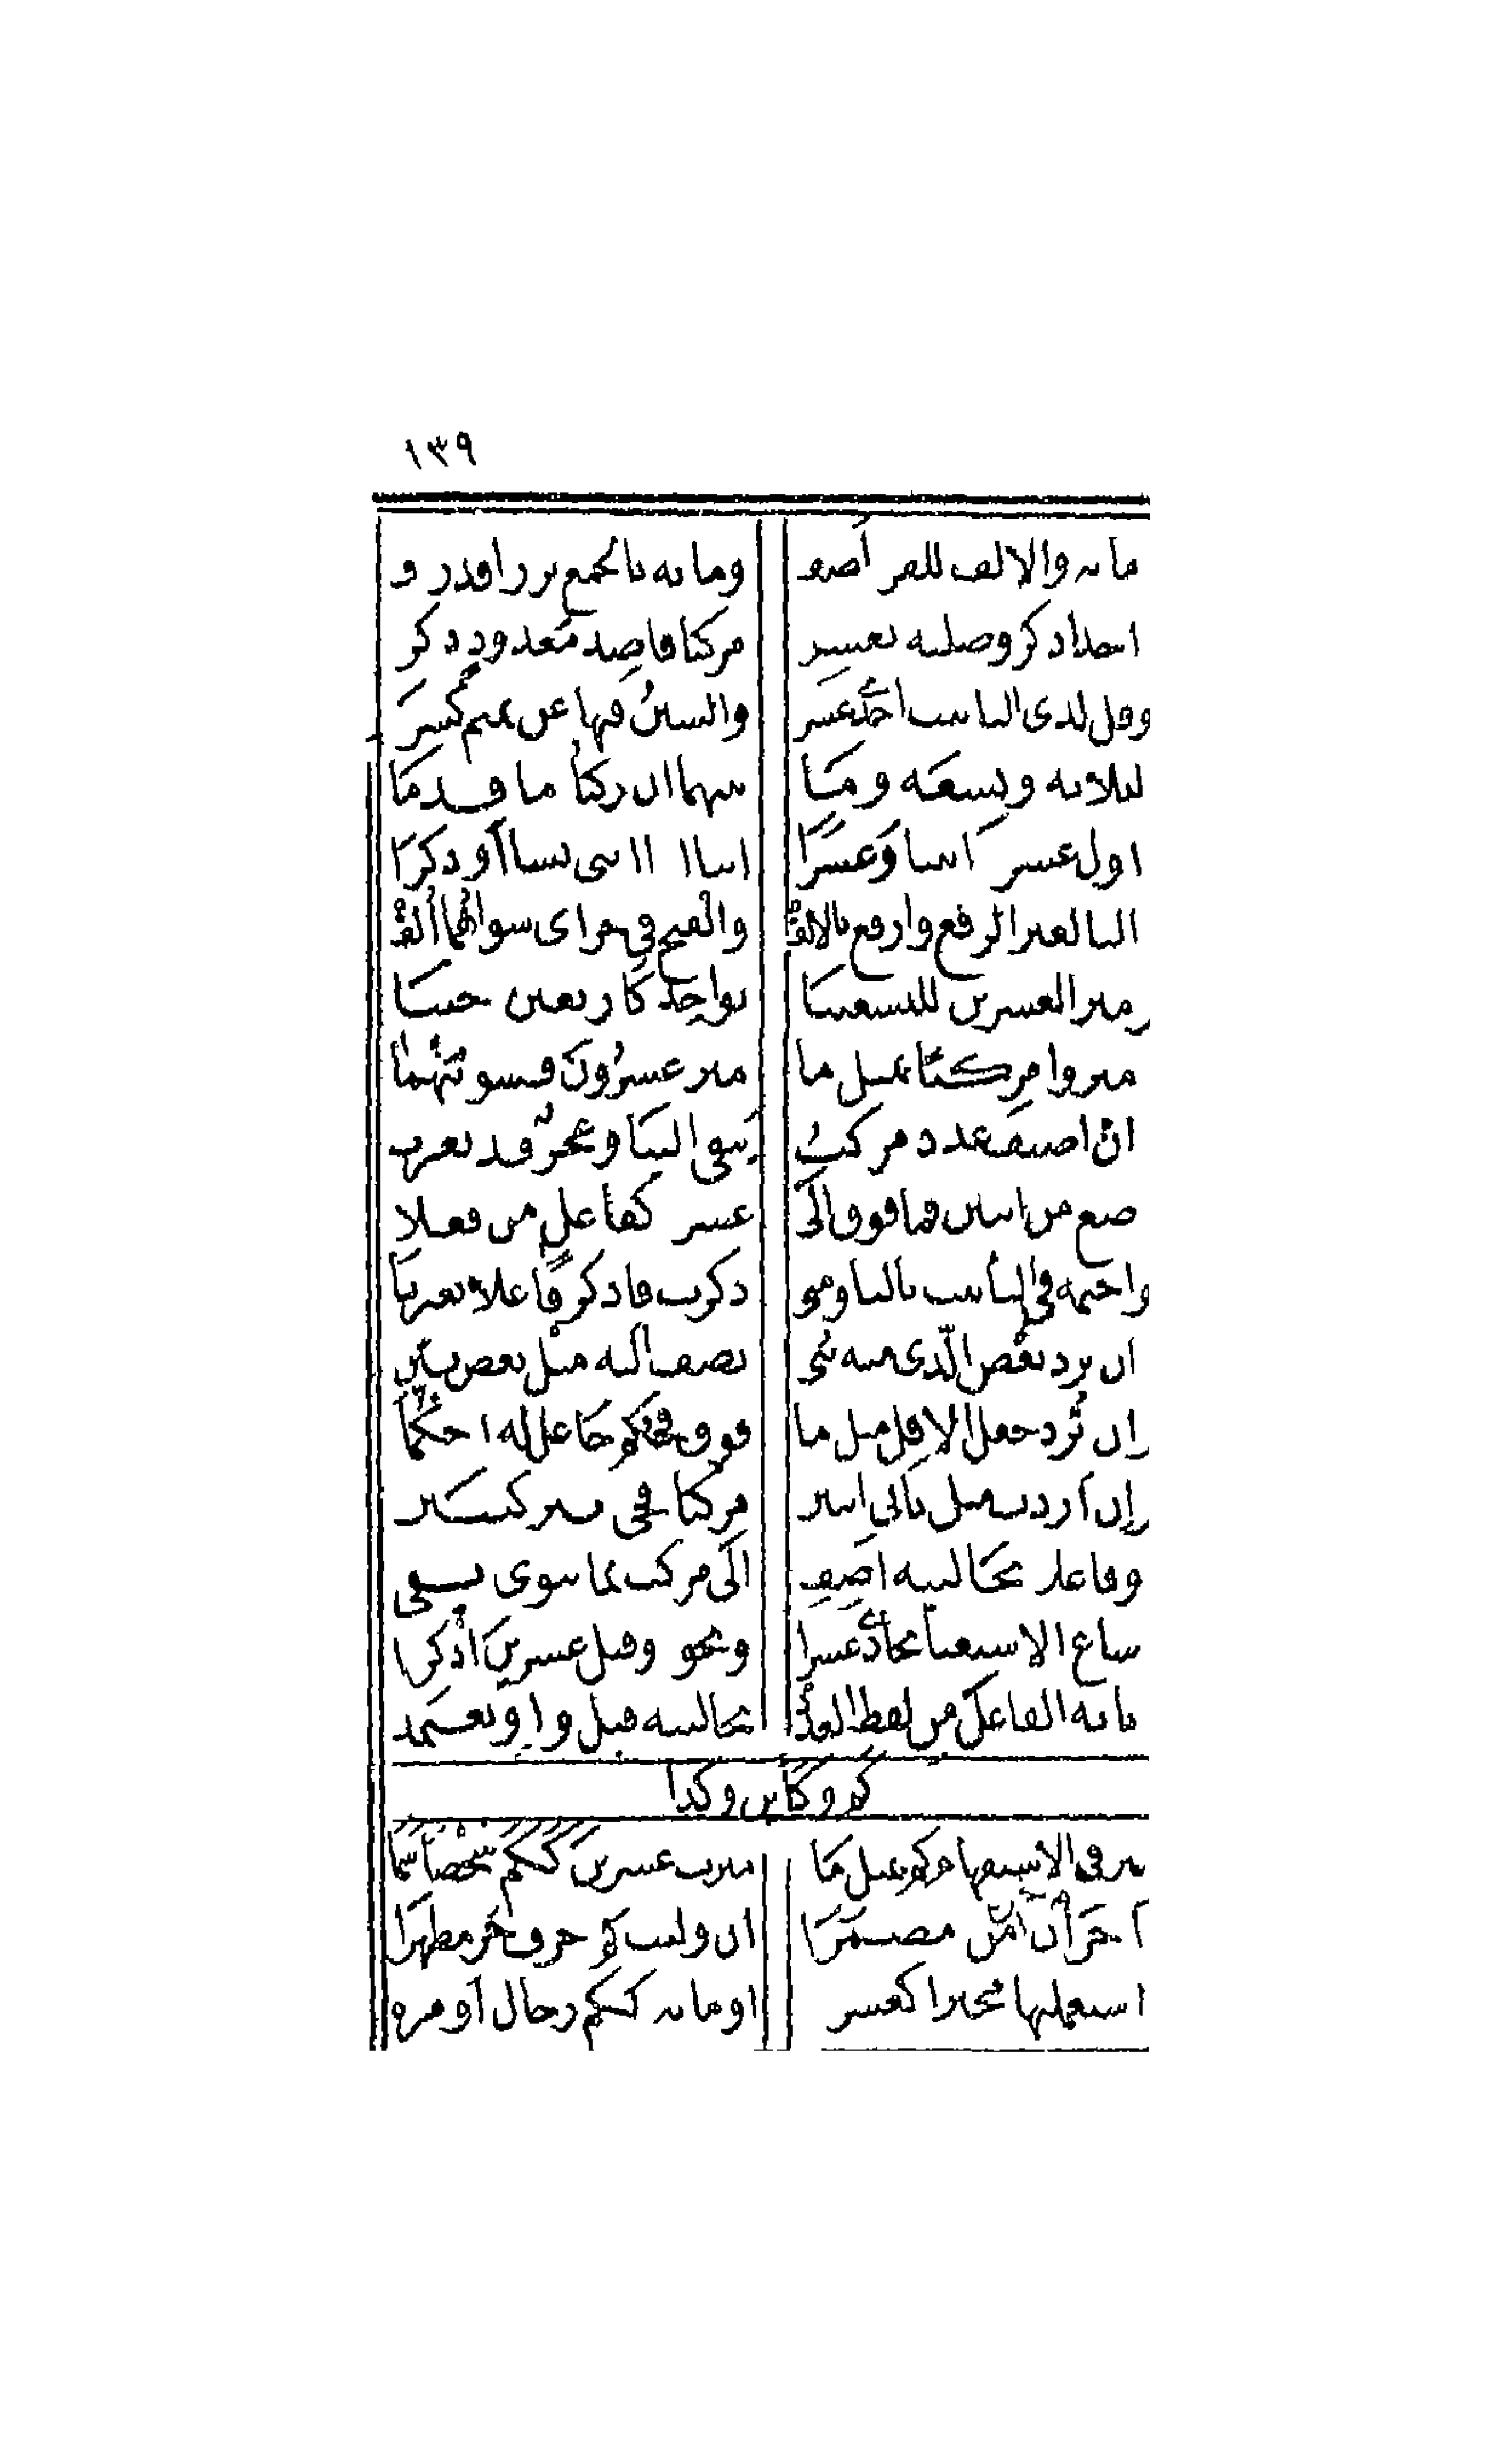 ١٣٩
مائة والالف للفرد أضف ومائة بالجمع نزرا قد رد ف
احدا ذكر وصلنه بعشر مركبا قاصد معدود ذكر
وقل لدى التانيث احدى عشر والشين فيها عن تميم كسر
لثلاثه وتسعه وما بينهما ان ركبا ما قدما
اول عشر اثنتا وعشرا اثنا اذا انثى تشا أو ذكرا
اليا لغير الرفع وارفع بالالف والفتح في جزاى سواهما ألف
ميز العشرين للتسعينا بواحد كاربعين حينا
ميزوا مركبًا بمثل ما ميز عشرون فسوينهما
ان اضيف عدد مركب يبقى البنا وعجز قد يعرب
صغ من اثنين فما فوق الى عشر كفاعل من فعلا
واختمه في التانيث بالتا ومتى ذكرت فاذكر فاعلا بغير تا
ان ترد بعض الذى منه بني تضف اليه مثل بعض بين
ان ترد جعل الاقل مثل ما فوق فحكم جاعل له احكما
إن اردت مثل ثاني اثنين مركبا فجى بتركيبين
وفاعلا بحالتيه اضف الى مركب بما تنوى يفي
شاع الاستغنا بحادى عشرا ونحو وقبل عشرين اذكرا
بابه الفاعل من لفظ العدد بحالتيه قبل واو يعتمد
كم وكاين وكذا
ميز في الاستفهام كم بمثل ما ميزت عشرين ككم شخصا سما
اجز أن تجره من مضمرا ان وليت كم حرف جر مظهرا
استعملنها مخبرا كعشر او مائه ككم رجال او مره